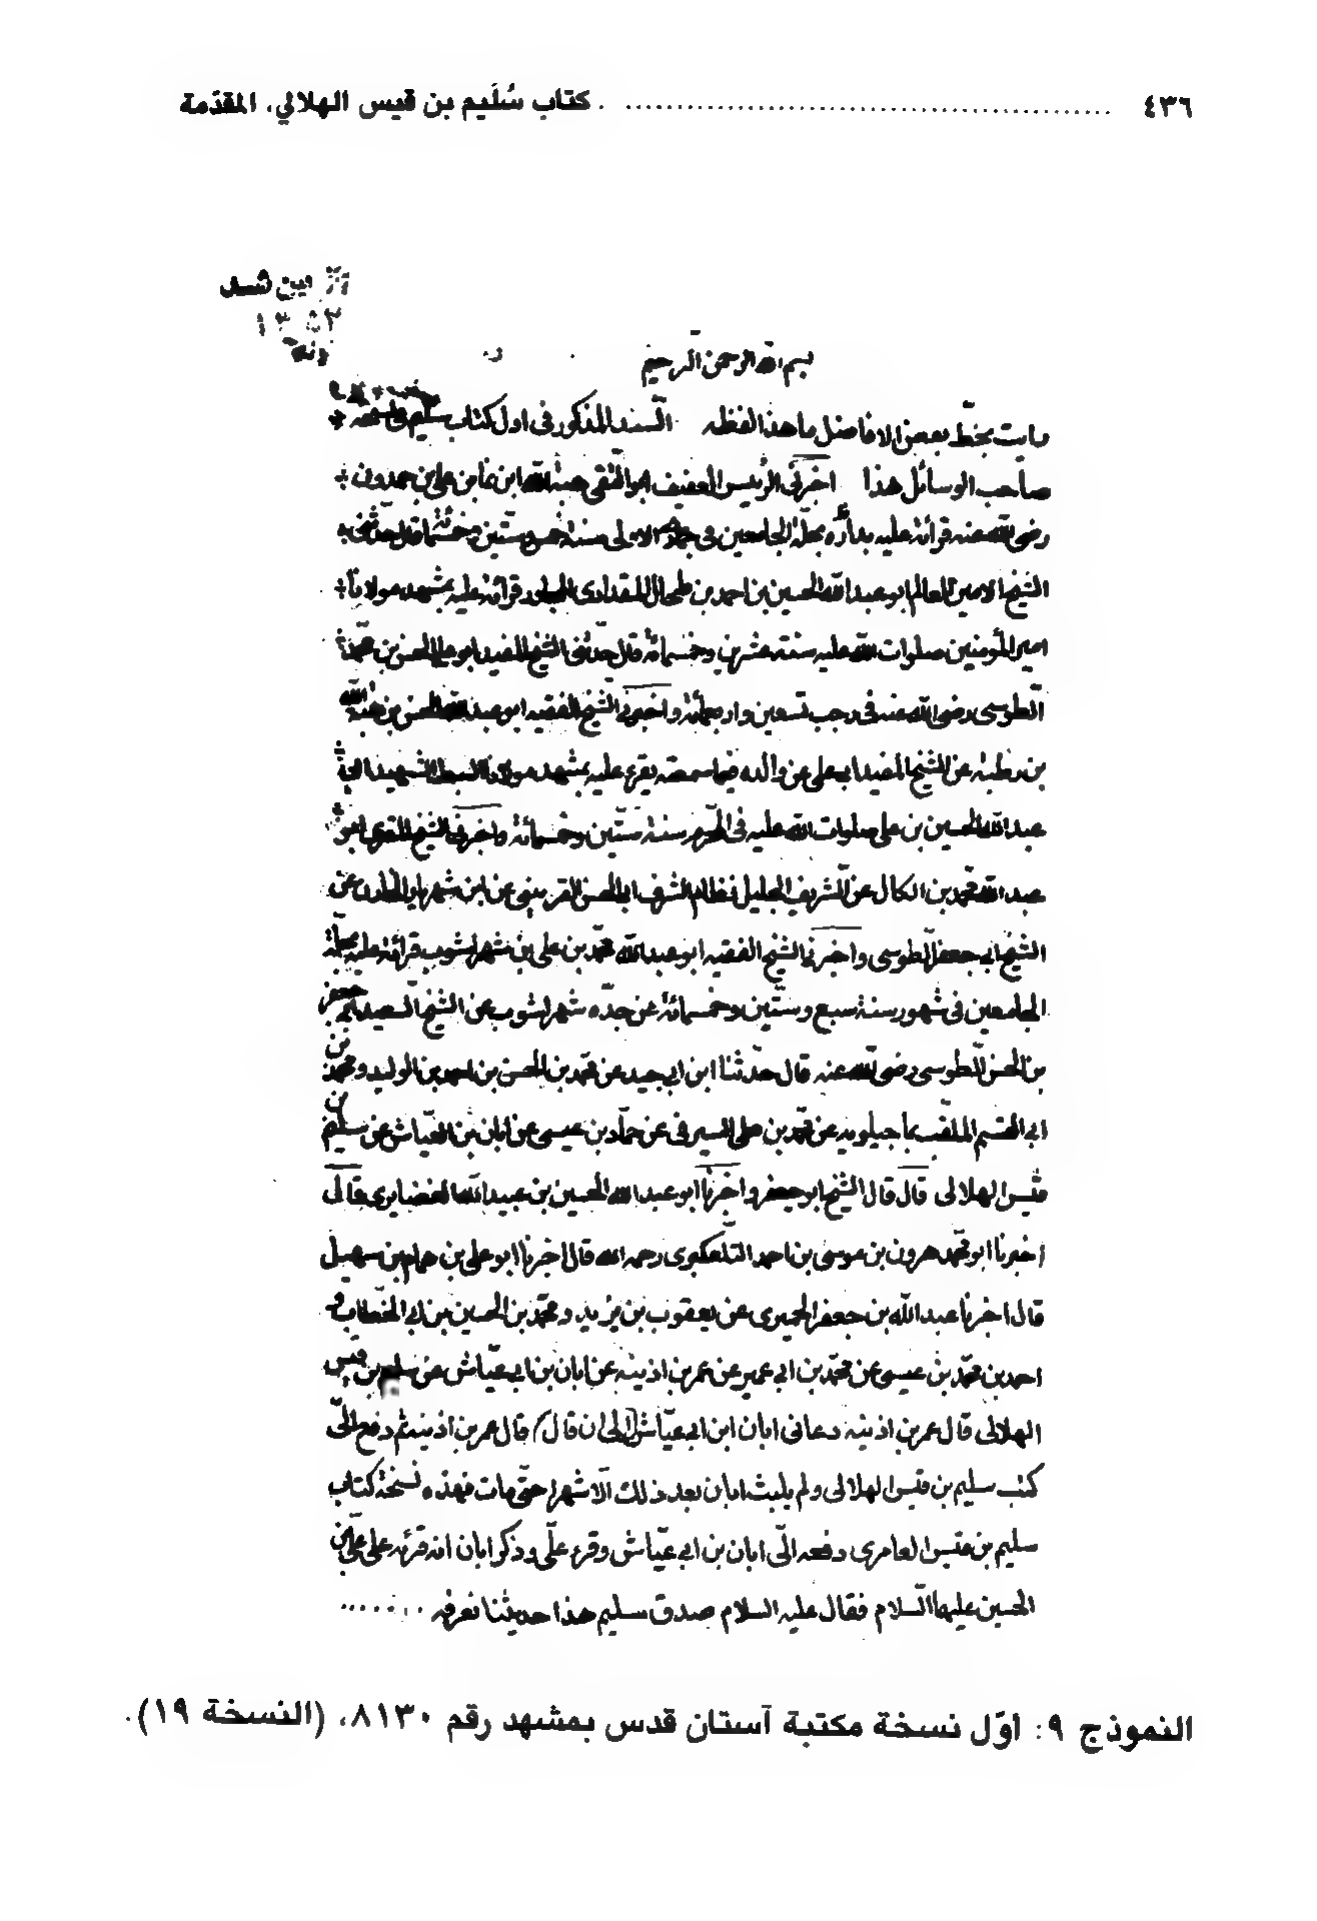 ٤٣٦ .......................................................... كتاب سُلَيم بن قيس الهلالي، المقدّمة
بين شد
١٣٥٢
بسم الله الرحمن الرحيم
رايت بخطّ بعض الافاضل ما هذا لفظه السند المذكور فى اول كتاب سليم
صاحب الوسائل هذا اخبرنى الرئيس العفيف ابو التقى هبة الله ابن نما بن على بن حمدون
رضى الله عنه قرائة عليه بداره بحلّة الجامعين فى جمادى الاولى سنة خمس وستّين وخمسمائة قال حدثنى
الشيخ الامين العالم ابو عبد الله الحسين بن احمد بن طحال المقدادى المجاور قرائة عليه بمشهد مولانا
امير المؤمنين صلوات الله عليه سنة عشرين وخمسمائة قال حدّثنى الشيخ المفيد ابو على الحسن بن محمّد
الطوسى رضى الله عنه فى رجب تسعين واربعمائة واخبرنى الشيخ الفقيه ابو عبد الله الحسن بن هبة الله
بن رطبة عن الشيخ المفيد ابى على عن والده فيما سمعته يقرء عليه بمشهد مولانا السبط الشهيد ابى
عبد الله الحسين بن على صلوات الله عليه فى المحرّم سنة ستّين وخمسمائة واخبرنى الشيخ المقرى ابو
عبد الله محمد بن الكال عن الشريف الجليل نظام الشرف ابى الحسن العريضى عن ابن شهريار الخازن عن
الشيخ ابى جعفر الطوسى واخبرنى الشيخ الفقيه ابو عبد الله محمّد بن على بن شهراشوب قرائة عليه بحلّة
الجامعين فى شهور سنة سبع وستّين وخمسمائة عن جدّه شهراشوب عن الشيخ السعيد ابى جعفر
بن الحسن الطوسى رضى الله عنه قال حدّثنا ابن ابى جيد عن محمّد بن الحسن بن احمد بن الوليد ومحمّد بن
ابى القسم الملقّب بماجيلويه عن محمّد بن على الصيرفى عن حمّاد بن عيسى عن ابان بن العيّاش عن سليم بن
قيس الهلالى قال قال الشيخ ابو جعفر واخبرنا ابو عبد الله الحسين بن عبيد الله الغضايرى قال
اخبرنا ابو محمّد هرون بن موسى بن احمد التلعكبرى رحمه الله قال اخبرنا ابو على بن همام بن سهيل
قال اخبرنا عبد الله بن جعفر الحميرى عن يعقوب بن يزيد ومحمّد بن الحسين بن ابى الخطاب و
احمد بن محمّد بن عيسى عن محمّد بن ابى عمير عن عمر بن اذينه عن ابان بن ابى عيّاش عن سليم بن قيس
الهلالى قال عمر بن اذينه دعانى ابان ابن ابى عيّاش (الى ان قال) قال عمر بن اذينه ثم دفع الىّ
كتب سليم بن قيس الهلالى ولم يلبث ابان بعد ذلك الّا شهرا حتّى مات فهذه نسخة كتاب
سليم بن قيس العامرى دفعه الىّ ابان بن ابى عيّاش وقرء علىّ وذكر ابان انه قرئه على علىّ بن
الحسين عليهما السّلام فقال عليه السلام صدق سليم هذا حديثنا نعرفه ......
النموذج ٩: أوّل نسخة مكتبة آستان قدس بمشهد رقم ٨١٣٠، (النسخة ١٩).